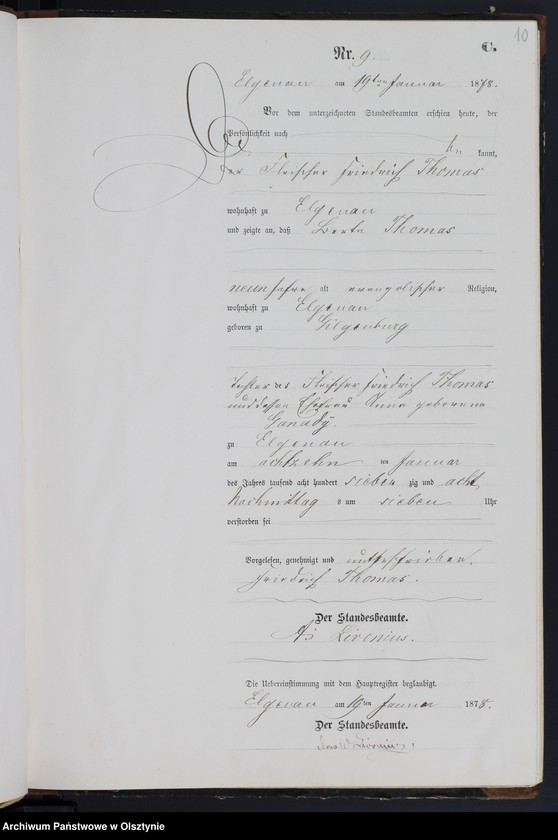 10
C.
Nr. 9.
Elgenau am 19ten Januar 1878.
Vor dem unterzeichneten Standesbeamten erschien heute, der
Persönlichkeit nach
kannt,
der Fleischer Friedrich Thomas
wohnhaft zu Elgenau
und zeigte an, daß Berta Thomas
neun Jahre alt evangelischer Religion,
wohnhaft zu Elgenau
geboren zu Gilgenburg
Tochter des Fleischer Friedrich Thomas
und dessen Ehefrau Anna geborene
zu Elgenau
am achtzehn ten Januar
des Jahres tausend acht hundert sieben zig und acht
Nachmittag s um sieben Uhr
verstorben sei
Vorgelesen, genehmigt und unterschrieben.
Friedrich Thomas.
Der Standesbeamte.
Livonius.
Die Uebereinstimmung mit dem Hauptregister beglaubigt.
Elgenau am 19ten Januar 1878.
Der Standesbeamte.
Livonius
Archiwum Państwowe w Olsztynie